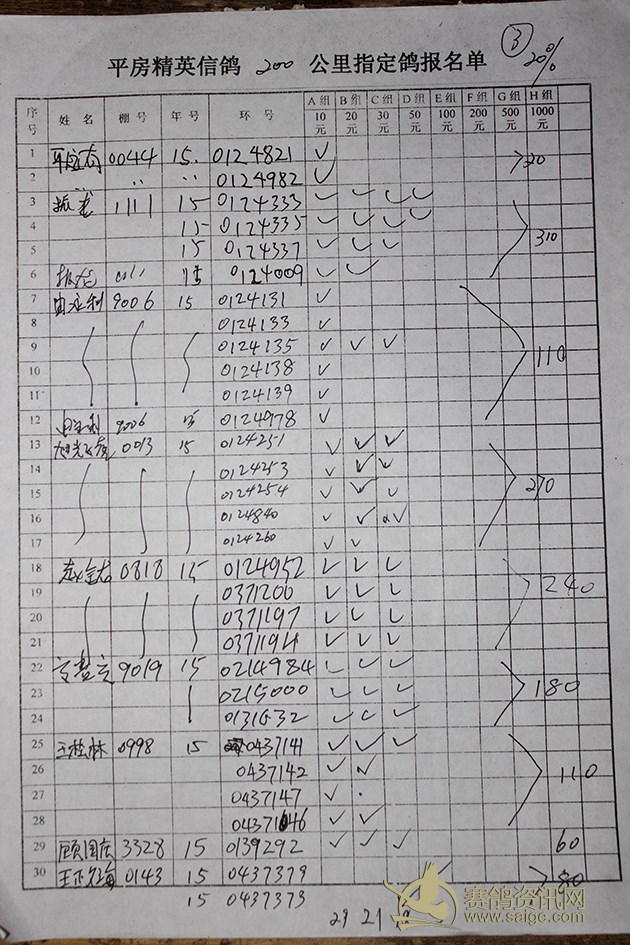 ③
20%
平房精英信鸽 200 公里指定鸽报名单
序号 姓名 棚号 年号 环号 A组10元 B组20元 C组30元 D组50元 E组100元 F组200元 G组500元 H组1000元
1 0044 15. 0124821 ✓
2 〃 〃 0124982 ✓
3 1111 15 0124333 ✓ ✓ ✓ ✓
4 15 0124335 ✓ ✓ ✓ ✓
5 15 0124337 ✓ ✓ ✓ 310
6 15 0124009 ✓ ✓
7 9006 15 0124131 ✓
8 0124133 ✓
9 0124135 ✓ ✓ ✓
10 0124138 ✓ 110
11 0124139 ✓
12 9006 15 0124978 ✓
13 0013 15 0124251 ✓ ✓ ✓
14 0124253 ✓ ✓ ✓
15 0124254 ✓ ✓ ✓ 270
16 0124840 ✓ ✓ ✓
17 0124260 ✓ ✓
18 0818 15 0124952 ✓ ✓ ✓
19 0371200 ✓ ✓ ✓ 240
20 0371197 ✓ ✓ ✓
21 0371194 ✓ ✓ ✓
22 9019 15 0214984 ✓ ✓ ✓
23 0215000 ✓ ✓ ✓ 180
24 0131632 ✓ ✓ ✓
25 王桂林 0998 15 0437141 ✓ ✓ ✓
26 0437142 ✓ ✓ 110
27 0437147 ✓
28 0437146 ✓ ✓
29 顾国庆 3328 15 0139292 ✓ ✓ ✓ 60
30 0143 15 0437379 80
15 0437373
29 21
赛鸽资讯网
www.saige.com